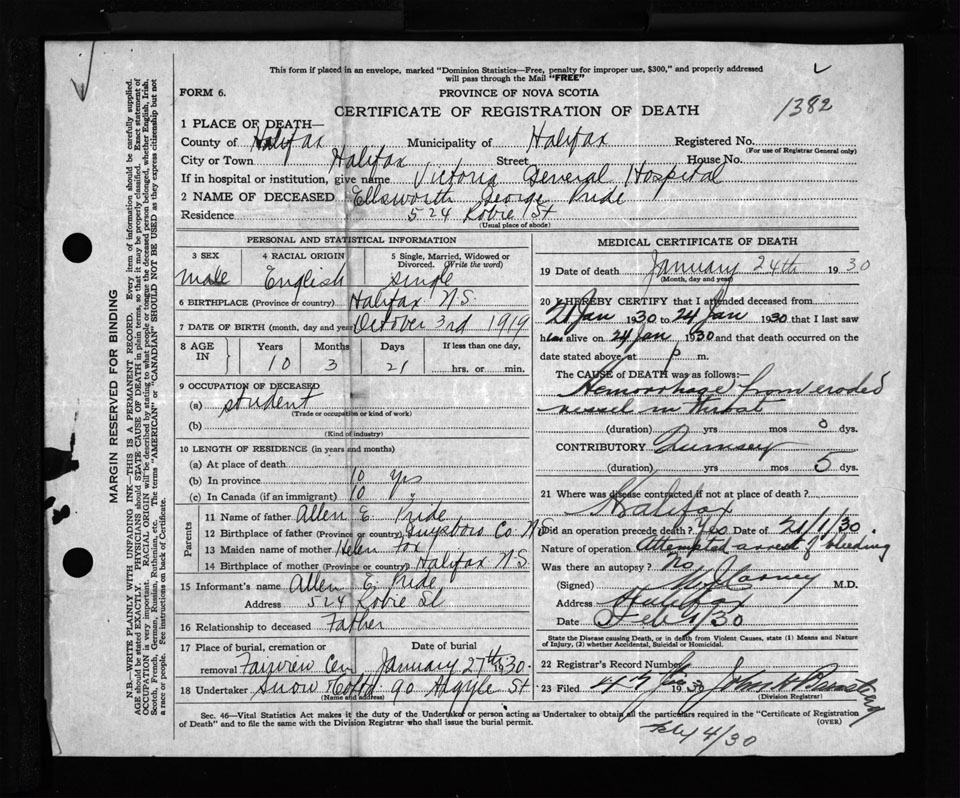 This form if placed in an envelope, marked "Dominion Statistics—Free, penalty for improper use, $300," and properly addressed
will pass through the Mail "FREE"
FORM 6.
PROVINCE OF NOVA SCOTIA
CERTIFICATE OF REGISTRATION OF DEATH
1382
1 PLACE OF DEATH—
County of Halifax Municipality of Halifax Registered No.
(For use of Registrar General only)
City or Town Halifax Street House No.
If in hospital or institution, give name Victoria General Hospital
2 NAME OF DECEASED Ellsworth George Pride
Residence 524 Robie St
(Usual place of abode)
PERSONAL AND STATISTICAL INFORMATION
3 SEX 4 RACIAL ORIGIN 5 Single, Married, Widowed or
Divorced. (Write the word)
Male English Single
6 BIRTHPLACE (Province or country) Halifax N.S.
7 DATE OF BIRTH (month, day and year) October 3rd 1919
8 AGE
IN
Years Months Days If less than one day,
10 3 21 hrs. or min.
9 OCCUPATION OF DECEASED
(a) student
(Trade or occupation or kind of work)
(b)
(Kind of industry)
10 LENGTH OF RESIDENCE (in years and months)
(a) At place of death
(b) In province 10 yrs
(c) In Canada (if an immigrant) 10 "
Parents
11 Name of father Allen E Pride
12 Birthplace of father (Province or country) Guysboro Co N.S
13 Maiden name of mother Helen Fox
14 Birthplace of mother (Province or country) Halifax N.S.
15 Informant's name Allen E Pride
Address 524 Robie St
16 Relationship to deceased Father
17 Place of burial, cremation or Date of burial
removal Fairview Cem January 27th 1930.
18 Undertaker Snow & Co Ltd 90 Argyle St
(Name and address)
MEDICAL CERTIFICATE OF DEATH
19 Date of death January 24th 1930
(Month, day and year)
20 I HEREBY CERTIFY that I attended deceased from
21 Jan 1930 to 24 Jan 1930 that I last saw
him alive on 24 Jan 1930 and that death occurred on the
date stated above, at p m.
The CAUSE of DEATH was as follows:—
Hemorrhage from eroded
vessel in throat
(duration) yrs mos 0 dys.
CONTRIBUTORY Quinsey
(duration) yrs mos 5 dys.
21 Where was disease contracted if not at place of death?
Halifax
Did an operation precede death? Yes Date of 21/1/30.
Nature of operation Attempted arrest of bleeding
Was there an autopsy? No
(Signed) M.D.
Address Halifax
Date Feb 1/30
State the Disease causing Death, or in death from Violent Causes, state (1) Means and Nature
of Injury, (2) whether Accidental, Suicidal or Homicidal.
22 Registrar's Record Number
23 Filed 1930 John
(Division Registrar)
Sec. 46—Vital Statistics Act makes it the duty of the Undertaker or person acting as Undertaker to obtain all the particulars required in the "Certificate of Registration
of Death" and to file the same with the Division Registrar who shall issue the burial permit. (OVER)
4/30
MARGIN RESERVED FOR BINDING
N.B.—WRITE PLAINLY WITH UNFADING INK—THIS IS A PERMANENT RECORD. Every item of information should be carefully supplied.
AGE should be stated EXACTLY. PHYSICIANS should STATE CAUSE OF DEATH in plain terms, so that it may be properly classified. Exact statement of
OCCUPATION is very important. RACIAL ORIGIN will be described by stating to what people or tongue the deceased person belonged, whether English, Irish,
Scotch, French, German, Russian, Ruthenian, etc. The terms "AMERICAN" or "CANADIAN" SHOULD NOT BE USED as they express citizenship but not
a race or people. See instructions on back of Certificate.